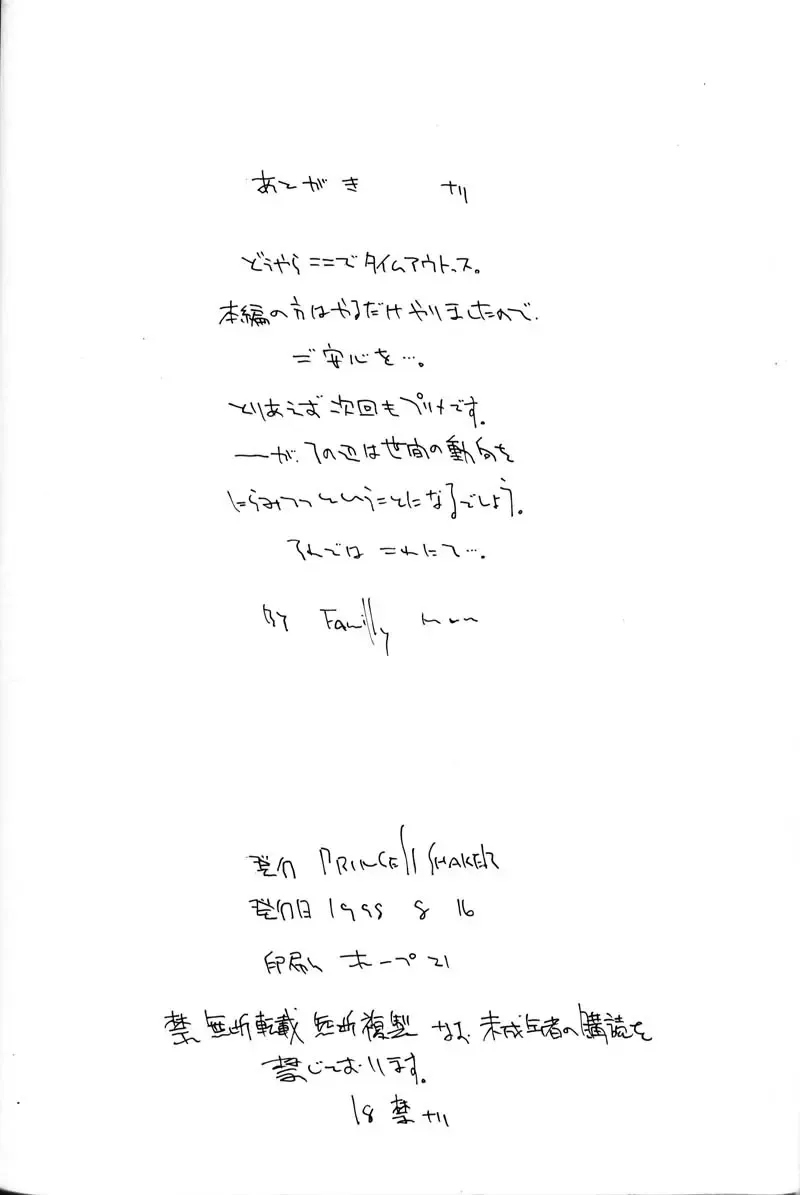 あとがき ナリ
どうやらここでタイムアウトっス。
本編の方はやるだけやりましたので.
ご安心を…。
とりあえず次回もプリメです。
―が、その辺は世間の動向を
にらみつつということになるでしょう。
それではこれにて…。
BY Familly
発行 PRINCESS SHAKER
発行日 1998 8 16
印刷 ホープ21
禁 無断転載 無断複製 なお、未成年者の購読を
禁じております。
18禁ナリ